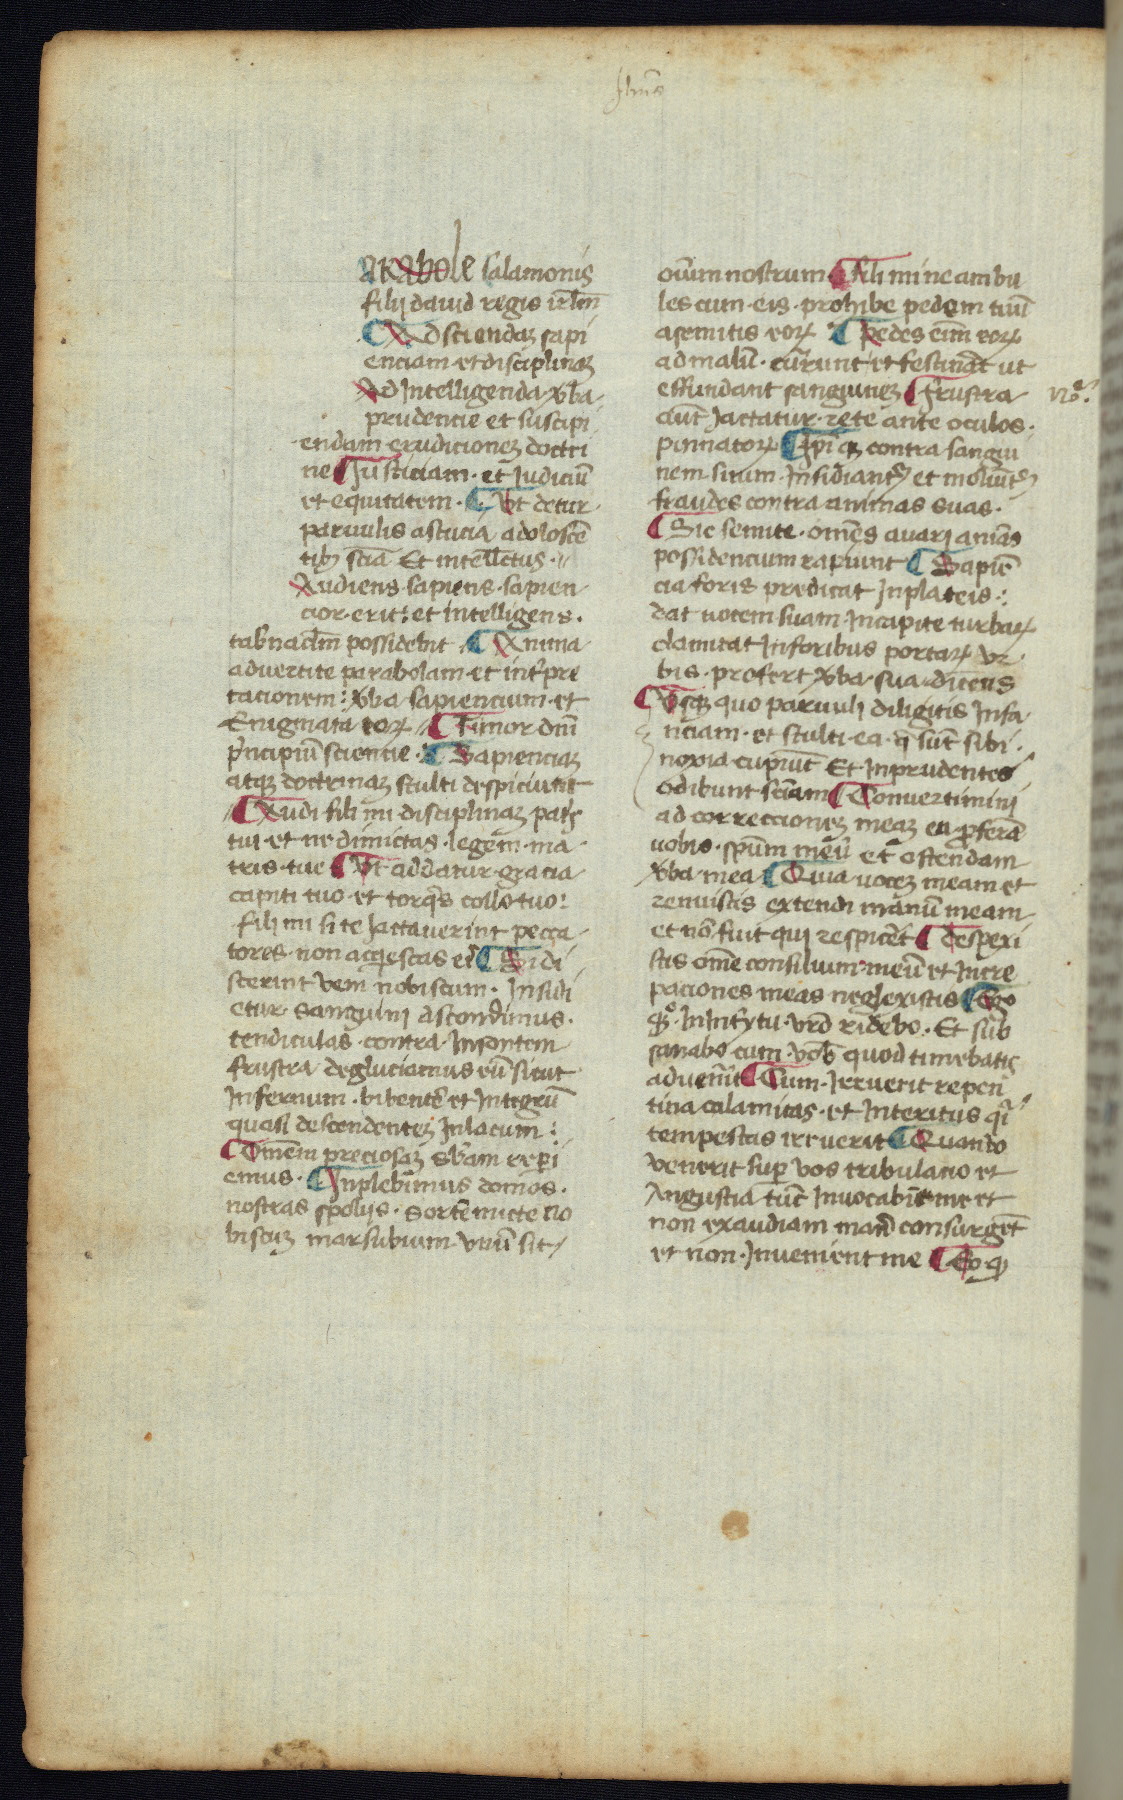 Jhūs
arabole salamonis
filij dauid regis irl̄m
¶ Ad sciendaꝫ sapi
enciam et disciplinaꝫ
Ad Intelligenda v̄ba
prudencie et suscipi
endam erudicioneꝫ doctri
ne ¶ Justiciam · et Judiciū
et equitatem · ¶ Vt detur
paruulis astucia adolescē
tibꝫ sciā Et intell̄ectus ·//
Audiens sapiens · sapien
cior · erit : et intelligens ·
gub'nacl̄m possidebit // ¶ Anima
aduertite parabolam · et int'pre
tacionem : v̄ba sapiencium · et
Enigmata eoꝝ // ¶ Timor dn̄i
p'ncipiū sciencie · ¶ Sapienciaꝫ
atqꝫ doctrinaꝫ stulti despiciunt
¶ Audi fili mi · disciplinaꝫ pat's
tui · et ne dimictas · legem · ma
tris · tue ¶ Vt addatur gracia
capiti tuo · et torq's collo tuo :
fili mi si te lactauerint pecca
tores · non acq'escas eis ¶ Si di
xerint veni nobiscum · Insidi
etur · sanguini abscondimus ·
tendiculas · contra · Insontem
frustra degluciamus eū sicut
Infernum · viuentē et Integrū
quasi descendenteꝫ In lacum :
¶ Omēm preciosaꝫ sb'am repi
emus · ¶ Inplebimus domos ·
nostras spolijs · sortē micte no
biscuꝫ marsubium vnū sit /
oīum nostrum · ¶ fili mi ne ambu
les cum · eis · prohibe pedem tuū
a semitis eoꝝ ¶ Pedes eim̄ eoꝝ
ad malū · currunt et festināt ut
effundant sanguineꝫ ¶ frustra
nōa
aut̄ Jactatur · rete ante oculos ·
pinnatoꝝ ¶ Ipi qꝫ contra sangui
nem suum · Insidiant' et moliūt'
fraudes contra animas suas ·
¶ Sic semite · om̄es auari anīas
possidencium rapiunt ¶ Sapiē
cia foris predicat In plateis :
dat uocem suam · In capite turbaꝝ
clamitat In foribus portaꝝ vr
bis · profert v̄ba · sua dicens
¶ Vsqꝫ quo paruuli diligitis Infa
nciam · et stulti · ea · q̄ sūt sibi ·
noxia cupiūt Et Inprudentes
odibunt sciam ¶ Conuertimini
ad correccioneꝫ meaꝫ en proferā
uobis · spūm meū et ostendam
v̄ba · mea ¶ Quia uocaꝫ meam et
renuistis extendi manū meam
et nō fuit qui respicēt ¶ Despexi
stis om̄e consilium · meū et Incre
paciones meas neglexistis ¶ Ego
qꝫ · In Int'ytu · vr̄o ridebo · Et sub
sanabo cum · vob̄ quod timebatis
aduen'it ¶ Cum · Irruerit repen
tina calamitas · et Interitus q'i
tempestas irruerit ¶ Quando
venerit sup vos tribulacio et
Angustia tūc Inuocabūt me et
non exaudiam man̄e consurgēt
et non · Inuenient me ¶ Eo q